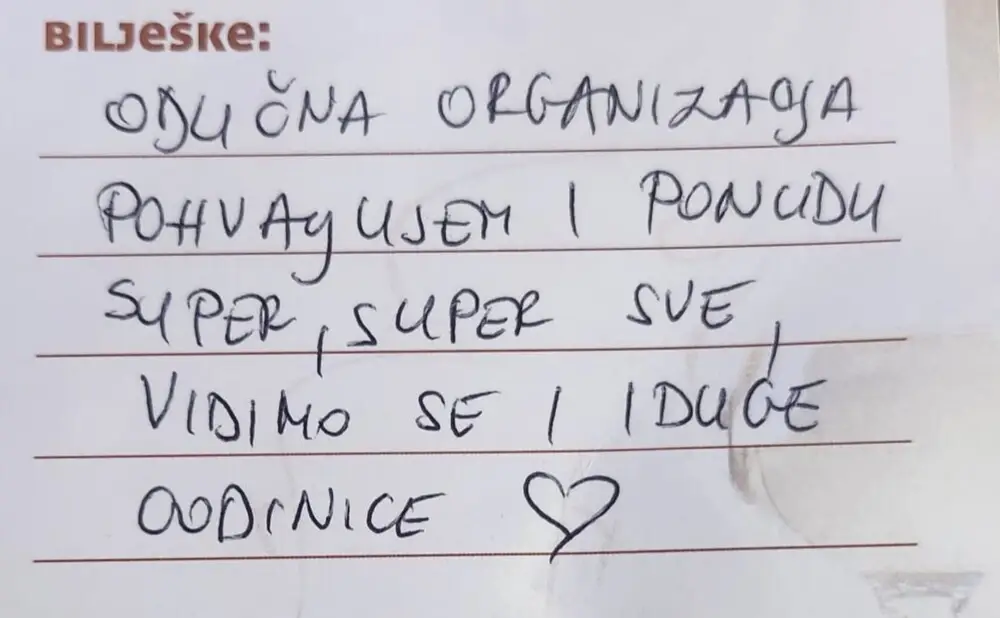 BILJEŠKE:
ODLIČNA ORGANIZACIJA
POHVALJUJEM I PONUDU
SUPER, SUPER SVE,
VIDIMO SE I IDUĆE
GODINICE ♡